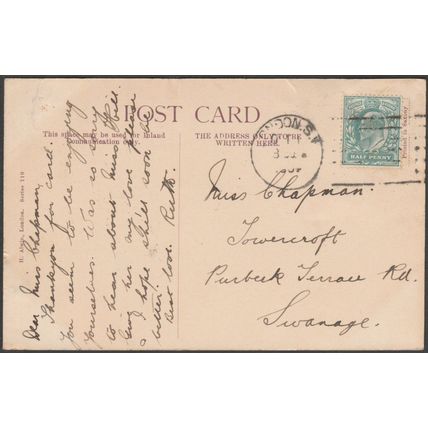 POST CARD
This space may be used for Inland
Communication only.
THE ADDRESS ONLY TO BE
WRITTEN HERE.
H. , London. Series 119
LONDON. S.W
HALF PENNY
Dear Miss Chapman,
Thankyou for card.
You seem to be enjoying
yourselves. Was so sorry
to hear about Miss Hill.
Give her my love please
& I hope she'll soon be
better.
Best love. Ruth.
Miss Chapman.
Towercroft
Purbeck Terrace Rd.
Swanage.